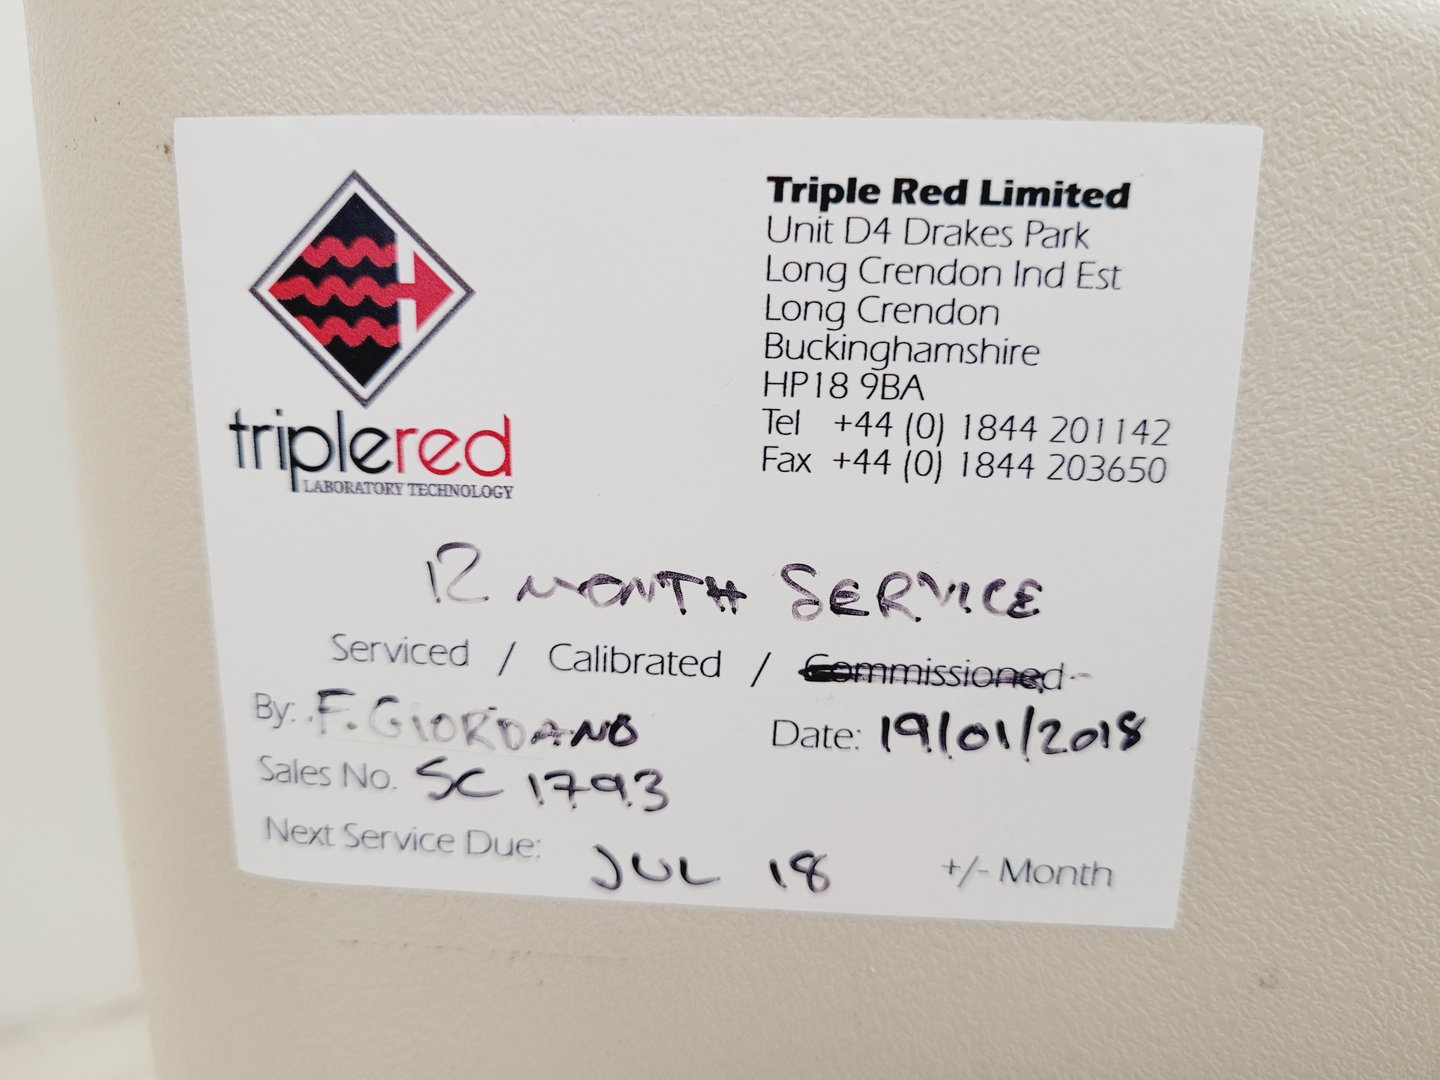 triplered
LABORATORY TECHNOLOGY
Triple Red Limited
Unit D4 Drakes Park
Long Crendon Ind Est
Long Crendon
Buckinghamshire
HP18 9BA
Tel +44 (0) 1844 201142
Fax +44 (0) 1844 203650
12 MONTH SERVICE
Serviced / Calibrated / Commissioned
By: F. GIORDANO Date: 19/01/2018
Sales No. SC 1793
Next Service Due: JUL 18 +/- Month